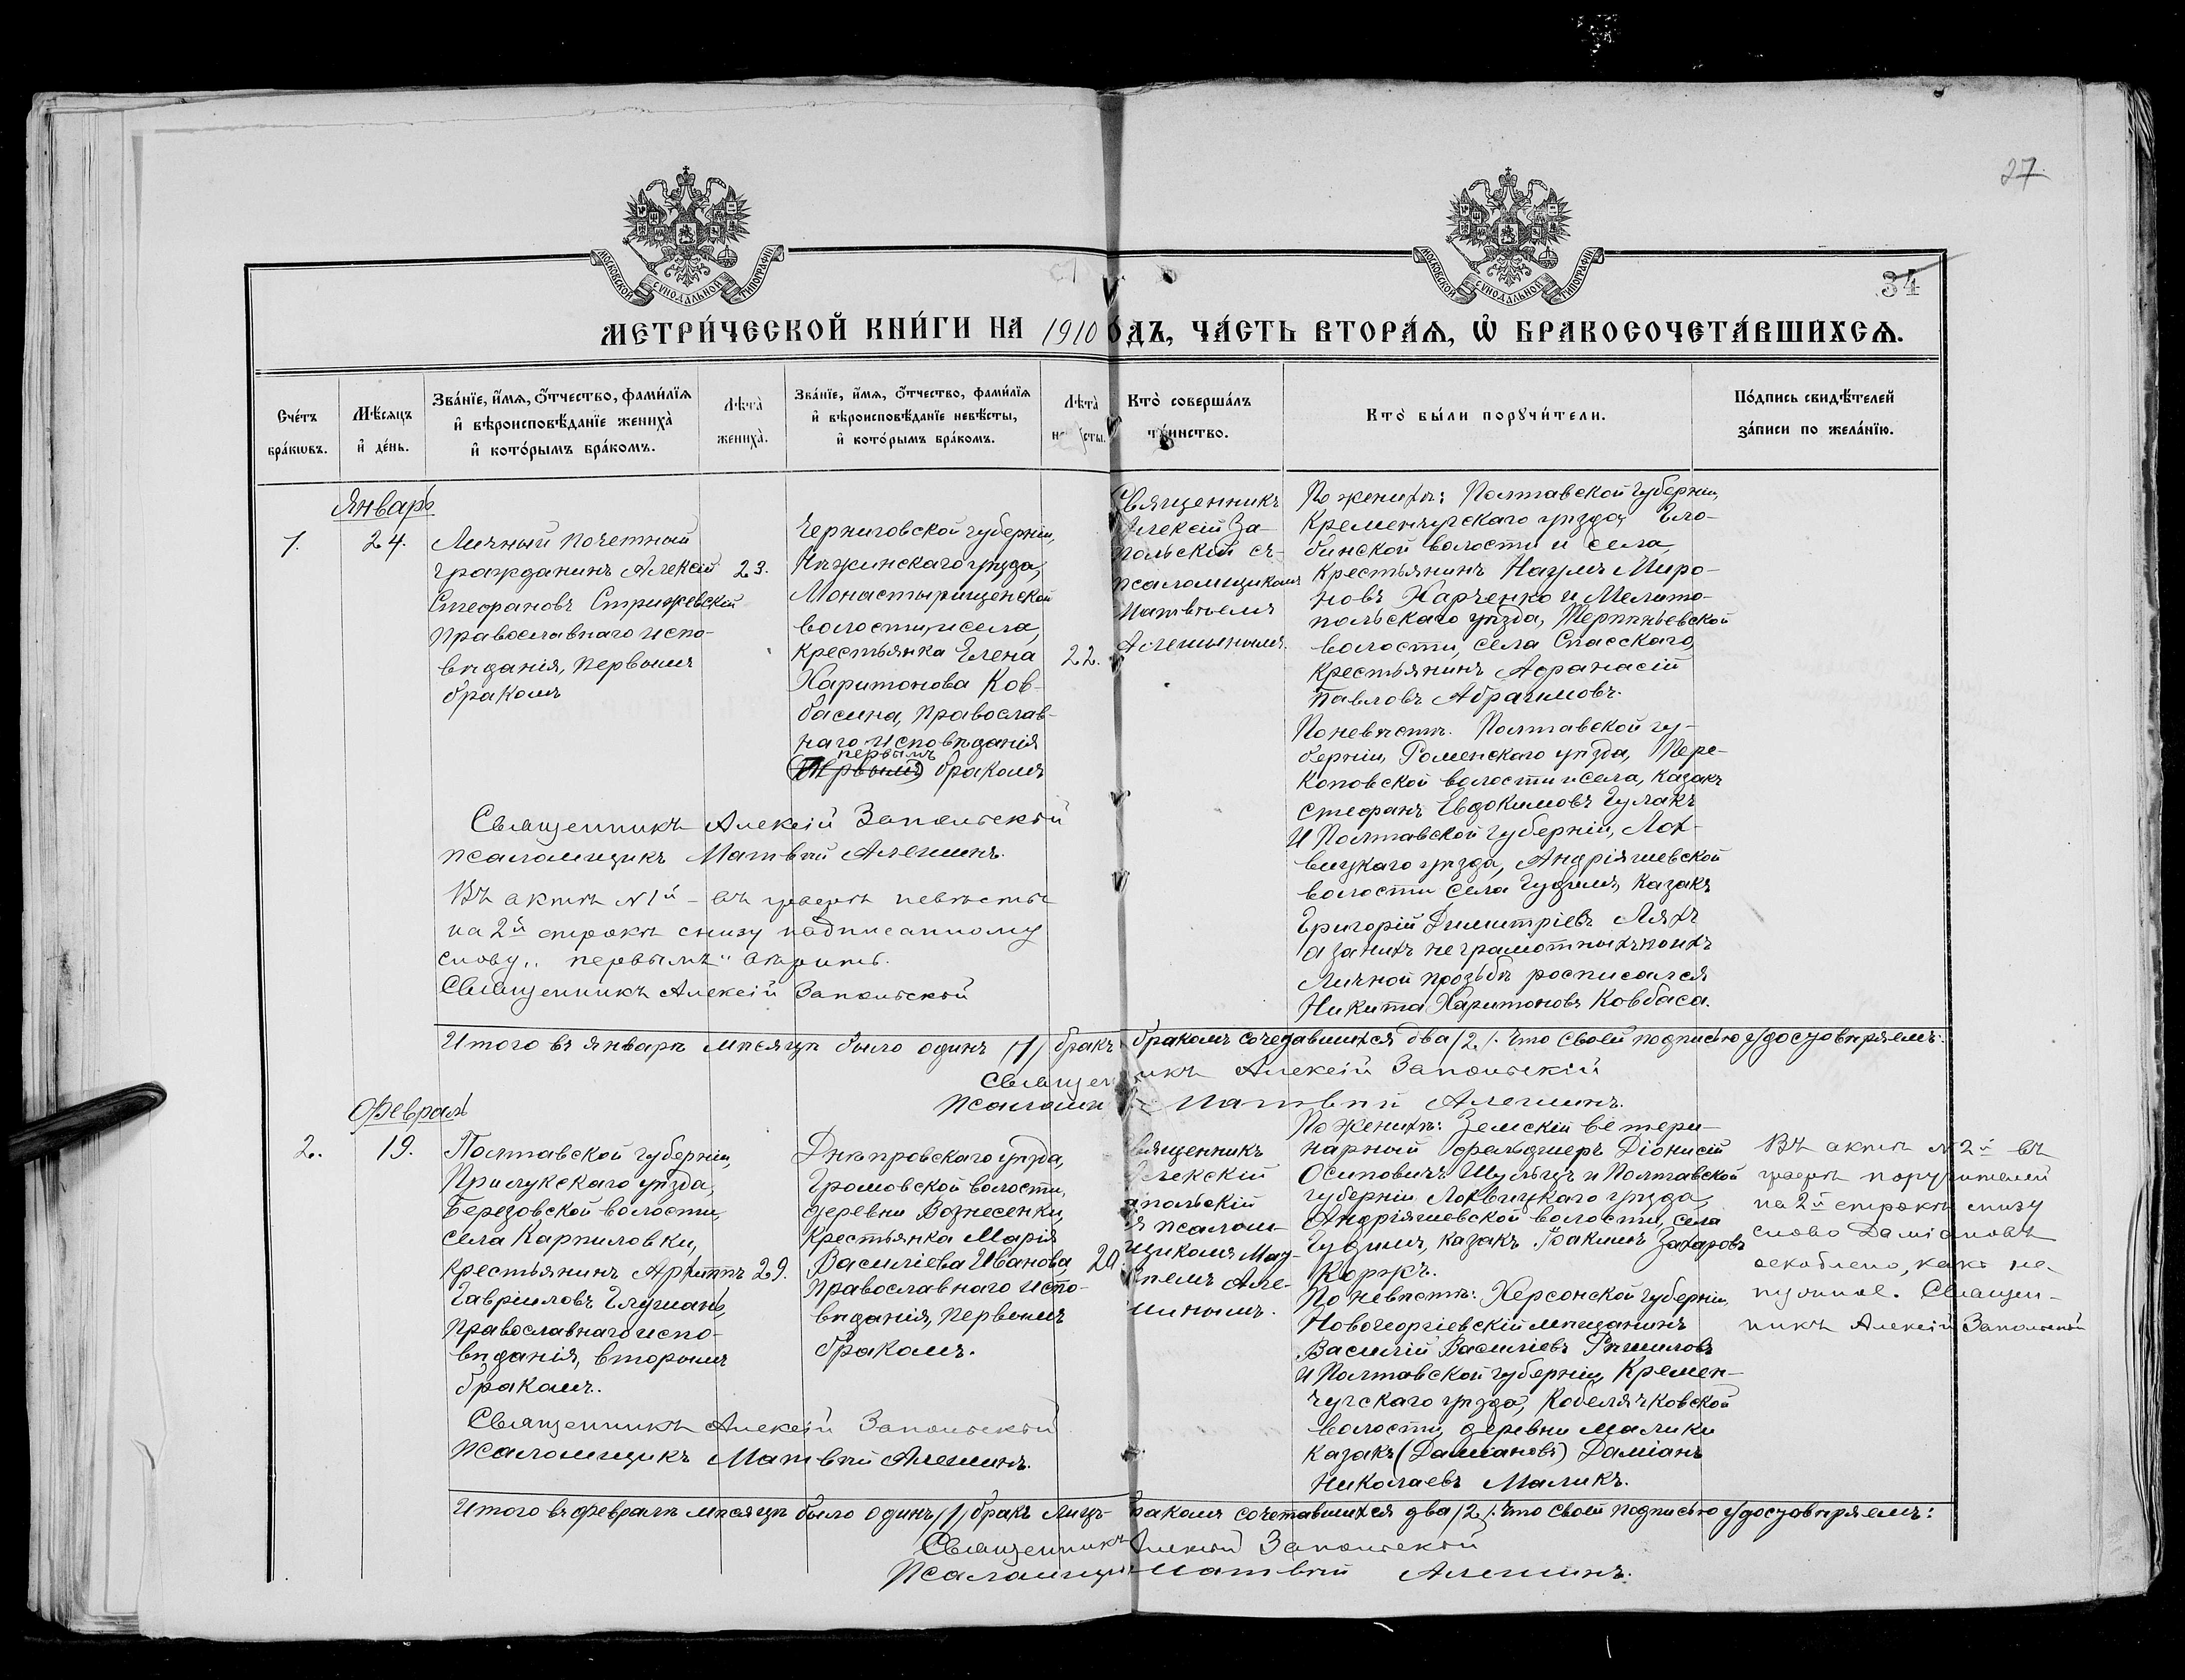 27
34
МОСКОВСКОЙ СУНОДАЛЬНОЙ ТИПОГРАФІИ
МОСКОВСКОЙ СУНОДАЛЬНОЙ ТИПОГРАФІИ
МЕТРИ́ЧЕСКОЙ КНИ́ГИ НА 1910 ОДЪ, ЧА́СТЬ ВТОРА́Ѧ, Ѽ БРАКОСОЧЕТА́ВШИХСѦ.
Сче́тъ
бра́кѡвъ.
Мѣ́сѧцъ
и҆ де́нь.
Зва́нїе, и҆́мѧ, ѻ҆́тчество, фами́лїѧ
и҆ вѣроисповѣ́данїе женихà
и҆ кото́рымъ бра́комъ.
Лѣтà
женихà.
Зва́нїе, и҆́мѧ, ѻ҆́тчество, фами́лїѧ
и҆ вѣроисповѣ́данїе невѣ́сты,
и҆ кото́рымъ бра́комъ.
Лѣтà
не сты.
Кто̀ соверша́лъ
та́инство.
Кто̀ бы́ли порꙋчи́тели.
По́дпись свидѣ́телей
за́писи по жела́нїю.
Январь
1.
24.
Личный почетный
гражданинъ Алексій
Стефановъ Стрижевскій
православнаго испо-
вѣданія, первымъ
бракомъ
23.
Черниговской губерніи,
Нѣжинскаго уѣзда,
Монастырищенской
волости, и села,
крестьянка Елена
Харитонова Ков-
басина, православ-
наго исповѣданія
первымъ
(первымъ) бракомъ
22.
Священникъ
Алексій За-
польскій съ
псаломщикомъ
Матвѣемъ
Алешинымъ.
По женихѣ: Полтавской губерніи,
Кременчугскаго уѣзда, Гло-
бинской волости и села,
крестьянинъ Наумъ Миро-
новъ Харченко и Мелито-
польскаго уѣзда, Терпѣньевской
волости, села Спасскаго,
крестьянинъ Афанасій
Павловъ Абрагимовъ.
По невѣстѣ. Полтавской гу-
берніи, Роменскаго уѣзда, Пере-
коповской волости и села, казакъ
Стефанъ Евдокимовъ Гулакъ
и Полтавской губерніи, Лох-
вицкаго уѣзда, Андріяшевской
волости села Гудимъ, казакъ
Григорій Димитріевъ Ляхъ
а за нихъ неграмотныхъ по ихъ
личной прозьбѣ росписался
Никита Харитоновъ Ковбаса.
Священникъ Алексій Запольскій
псаломщикъ Матвѣй Алешинъ.
Въ актѣ №1й - въ графѣ невѣсты
на 2й строкѣ снизу надписанному
слову „первымъ“ вѣрить.
Священникъ Алексій Запольскій
Итого въ январѣ мѣсяцѣ было одинъ /1/ бракъ бракомъ сочетавшихся два /2/. Что своей подписью удостовѣряемъ:
Священникъ Алексій Запольскій
Псаломщ Матвѣй Алешинъ.
Февраль
2.
19.
Полтавской губерніи,
Прилукскаго уѣзда,
Березовской волости,
села Карпиловки,
крестьянинъ Архиппъ
Гавріиловъ Глушань,
православнаго испо-
вѣданія, вторымъ
бракомъ.
29.
Днѣпровскаго уѣзда,
Громовской волости,
деревни Вознесенки,
крестьянка Марія
Василіева Иванова,
православнаго испо-
вѣданія, первымъ
бракомъ.
20.
вященникъ
Алексій
апольскій
ъ псалом-
щикомъ Мат-
ѣемъ Але-
шинымъ.
По женихѣ: Земскій ветери-
нарный фельдшеръ Діонисій
Осиповичъ Шульцъ и Полтавской
губерніи Лохвицкаго уѣзда,
Андріяшевской волости, села
Гудимъ, казакъ Іоакимъ Захаровъ
Коржъ.
По невѣстѣ: Херсонской губерніи,
Новогеоргіевскій мѣщанинъ
Василій Василіевъ
и Полтавской губерніи, Кремен-
чугскаго уѣзда, Кобелячковской
волости, деревни Малики
казакъ (Даміановъ) Даміанъ
Николаевъ Маликъ.
Въ актѣ №2й въ
графѣ поручителей
на 2й строкѣ снизу
слово Даміановъ
оскоблено, какъ не-
нужное. Священ-
никъ Алексій Запольскій
Священникъ Алексій Запольскій
псаломщикъ Матвѣй Алешинъ.
Итого въ февралѣ мѣсяцѣ было одинъ /1/ бракъ лицъ бракомъ сочетавшихся два /2/. Что своей подписью удостовѣряемъ:
Священникъ Алексій Запольскій
Псаломщ Матвѣй Алешинъ.